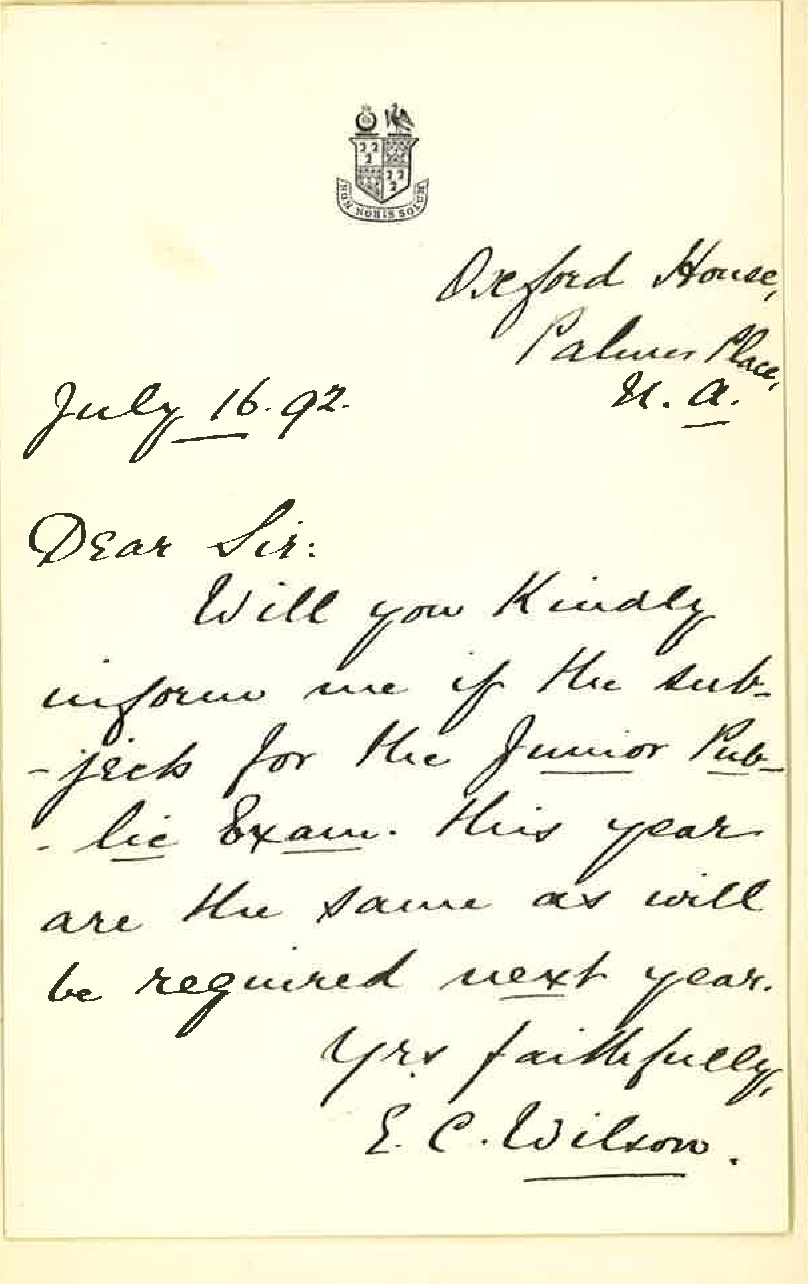 NON NOBIS SOLUM
Oxford House,
Palmer Place,
N. A.
July 16. 92.
Dear Sir:
Will you Kindly
inform me if the sub-
-jects for the Junior Pub-
- lic Exam. this year
are the same as will
be required next year.
Yrs faithfully,
E. C. Wilson.